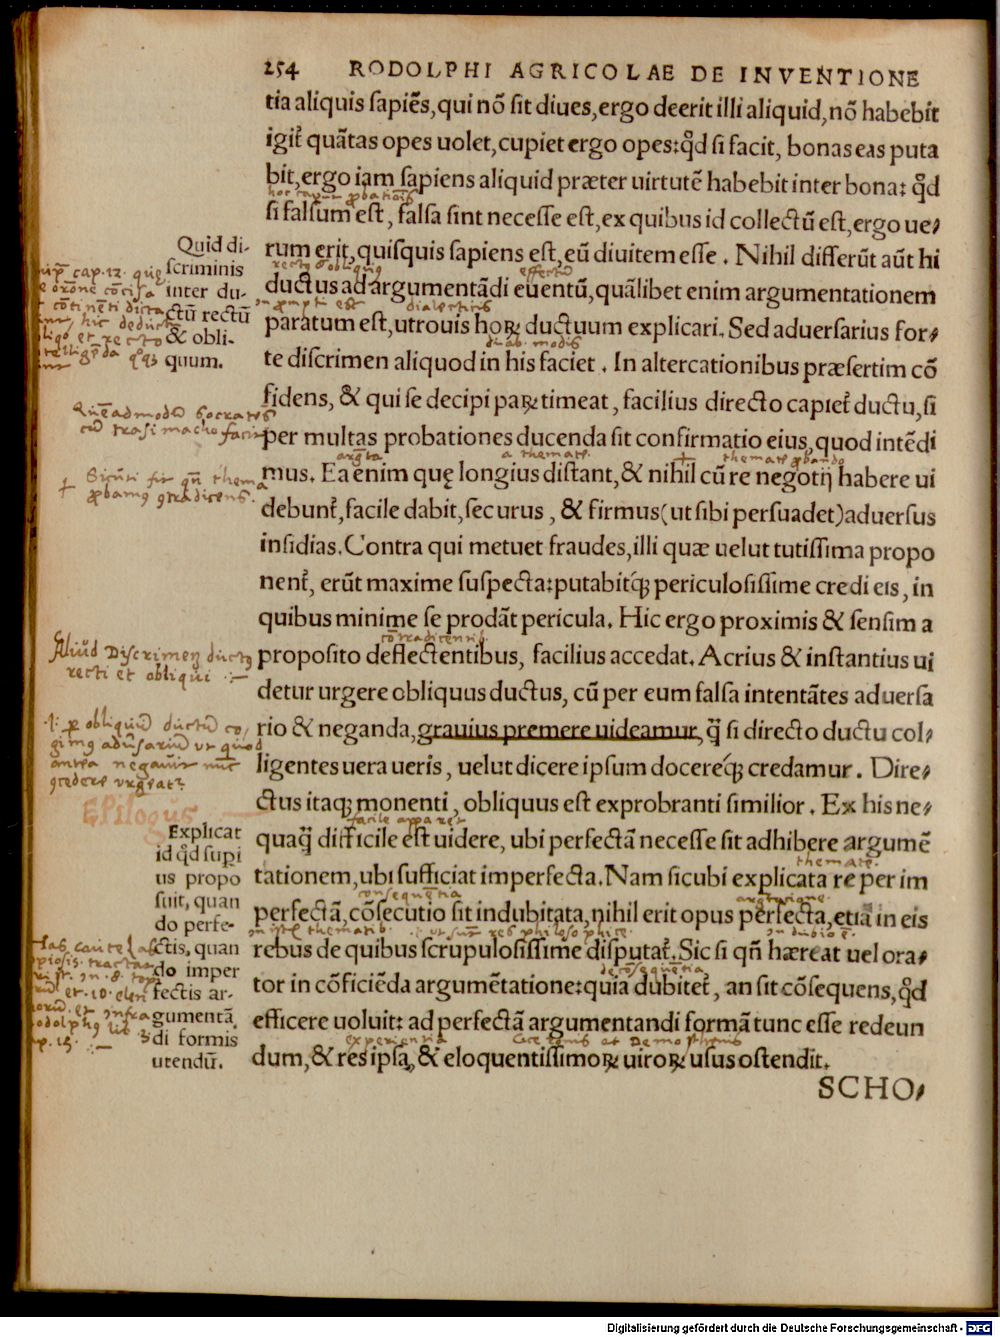 254 RODOLPHI AGRICOLAE DE INVENTIONE
tia aliquis ſapiẽs, qui nõ ſit diues, ergo deerit illi aliquid, nõ habebit
igit᷑ quãtas opes uolet, cupiet ergo opes: qđ ſi facit, bonas eas puta
bit, ergo iam ſapiens aliquid præter uirtutẽ habebit inter bona: qđ
ſi falſum eſt, falſa ſint neceſſe eſt, ex quibus id collectũ eſt, ergo ue⸗
rum erit, quiſquis ſapiens eſt, eũ diuitem eſſe. Nihil differũt aũt hi
ductus ad argumentãdi euentũ, quãlibet enim argumentationem
paratum eſt, utrouis hoꝝ ductuum explicari. Sed aduerſarius for⸗
te diſcrimen aliquod in his faciet. In altercationibus præſertim cõ
fidens, & qui ſe decipi paꝝ timeat, facilius directo capiet᷑ ductu, ſi
per multas probationes ducenda ſit confirmatio eius, quod intẽdi
mus. Ea enim quę longius diſtant, & nihil cũ re negotij habere ui
debunt᷑, facile dabit, ſecurus, & firmus (ut ſibi perſuadet) aduerſus
inſidias. Contra qui metuet fraudes, illi quæ uelut tutiſſima propo
nent᷑, erũt maxime ſuſpecta: putabitq́ꝫ periculoſiſſime credi eis, in
quibus minime ſe prodãt pericula. Hic ergo proximis & ſenſim a
propoſito deflectentibus, facilius accedat. Acrius & inſtantius ui
detur urgere obliquus ductus, cũ per eum falſa intentãtes aduerſa
rio & neganda, grauius premere uideamur, q̃ ſi directo ductu col⸗
ligentes uera ueris, uelut dicere ipſum docereq́ꝫ credamur. Dire⸗
ctus itaqꝫ monenti, obliquus eſt exprobranti ſimilior. Ex his ne⸗
quaq̃ difficile eſt uidere, ubi perfectã neceſſe ſit adhibere argumẽ
tationem, ubi ſufficiat imperfecta. Nam ſicubi explicata re per im
perfectã, cõſecutio ſit indubitata, nihil erit opus perfecta, etiã in eis
rebus de quibus ſcrupuloſiſſime diſputat᷑. Sic ſi qñ hæreat uel ora⸗
tor in cõficiẽda argumẽtatione: quia dubitet᷑, an ſit cõſequens, qđ
efficere uoluit: ad perfectã argumentandi formã tunc eſſe redeun
dum, & res ipſa, & eloquentiſſimoꝝ uiroꝝ uſus oſtendit.
SCHO⸗
Quid di⸗
ſcriminis
inter du⸗
ctũ rectũ
& obli⸗
quum.
Quẽadmodũ Socrates
Aliud Diſcrimen ductus
recti et obliqui
Epilogus
Explicat
id qđ ſupi
us propo
ſuit, quan
do perfe⸗
ctis, quan
do imper
fectis ar⸗
gumentã
di formis
utendũ.
Digitalisierung gefördert durch die Deutsche Forschungsgemeinschaft - DFG